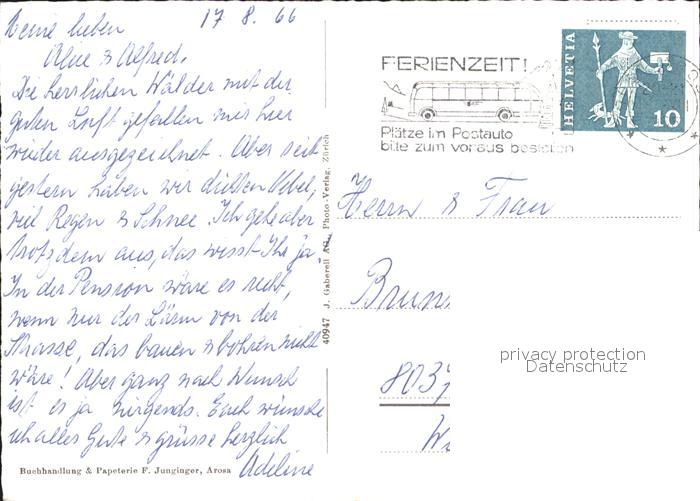 17. 8. 66
Meine lieben
Alice & Alfred,
Die herrlichen Wälder mit der
guten Luft gefallen mir hier
wieder ausgezeichnet. Aber seit
gestern haben wir dicksten Nebel,
viel Regen & Schnee. Ich gehe aber
trotzdem aus, das wisst Ihr ja.
In der Pension wäre es recht,
wenn nur der Lärm von der
Strasse, das bauen & bohren nicht
wäre! Aber ganz nach Wunsch
ist es ja nirgends. Euch wünsche
ich alles Gute & grüsse herzlich
Adeline
Buchhandlung & Papeterie F. Junginger, Arosa
40947 J. Gaberell AG., Photo-Verlag, Zürich
FERIENZEIT!
Plätze im Postauto
bitte zum voraus bestellen
HELVETIA
10
Herrn & Frau
Brun
803
privacy protection
Datenschutz